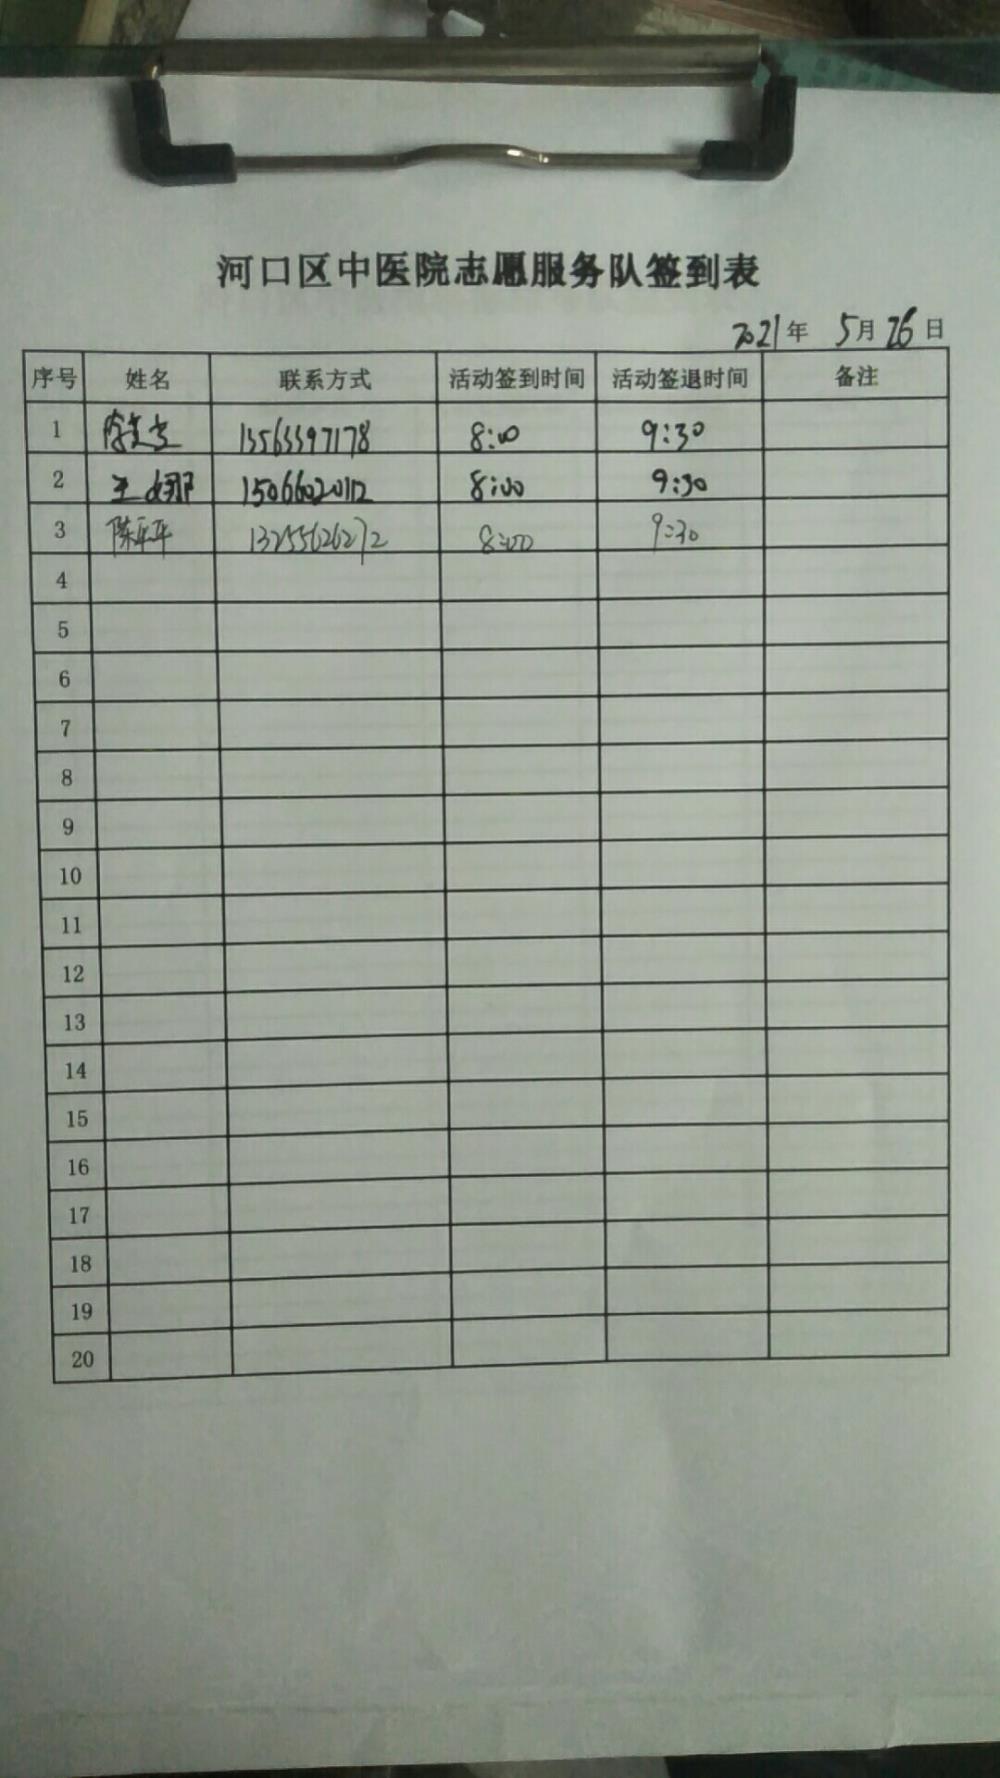 河口区中医院志愿服务队签到表
2021年 5月26日
序号 姓名 联系方式 活动签到时间 活动签退时间 备注
1 13563397178 8:00 9:30
2 王娜 15066020112 8:00 9:30
3 陈平平 13255626272 8:00 9:30
4
5
6
7
8
9
10
11
12
13
14
15
16
17
18
19
20